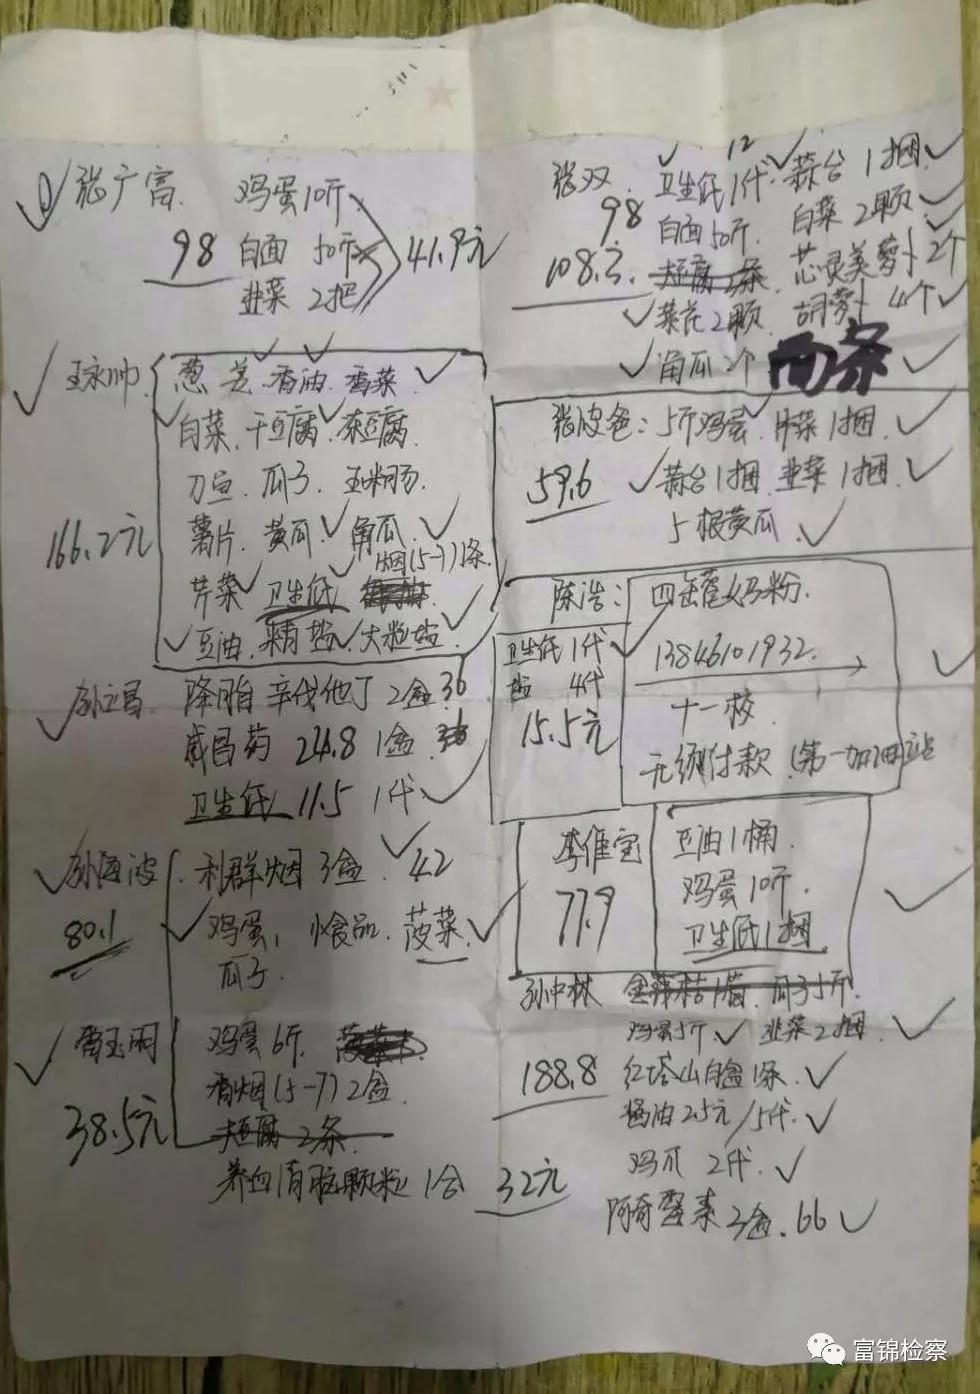 张广富 鸡蛋10斤
98 白面 50斤 41.9元
韭菜 2把
王永帅 葱 姜 香油 香菜
白菜 干豆腐 冻豆腐
刀鱼 瓜子 玉米肠
166.2元 薯片 黄瓜 角瓜
烟(5-7)1条
芹菜 卫生低
豆油 精盐 大粒盐
孙立昌 降脂 辛伐他丁 2盒 36
24.8 1盒
卫生低 11.5 1代
孙海波 利群烟 3盒 42
80.1 鸡蛋 菠菜
瓜子
鸡蛋6斤
香烟(5-7)2盒
38.5元 大豆腐 2条
养血清脑颗粒 1合 32元
12
张双 卫生低1代 蒜台 1捆
98 白面50斤 白菜 2颗
108.3 大豆腐 2条 芯灵美萝卜2个
菜花2颗 胡萝卜 4个
角瓜2个 面条
张皮爸：5斤鸡蛋 芹菜1捆
59.6 蒜台1捆 韭菜1捆
5根黄瓜
陈浩： 四罐奶粉
卫生低 1代 13846101932
盐 4代 十一校
15.5元 无须付款 (第一加油站
李维宝 豆油1桶
77.9 鸡蛋10斤
卫生低1捆
孙中林 瓜子5斤
鸡蛋5斤 韭菜2捆
188.8 红塔山 1条
酱油2.5元/5代
鸡爪 2代
阿奇霉素 3盒 66
富锦检察